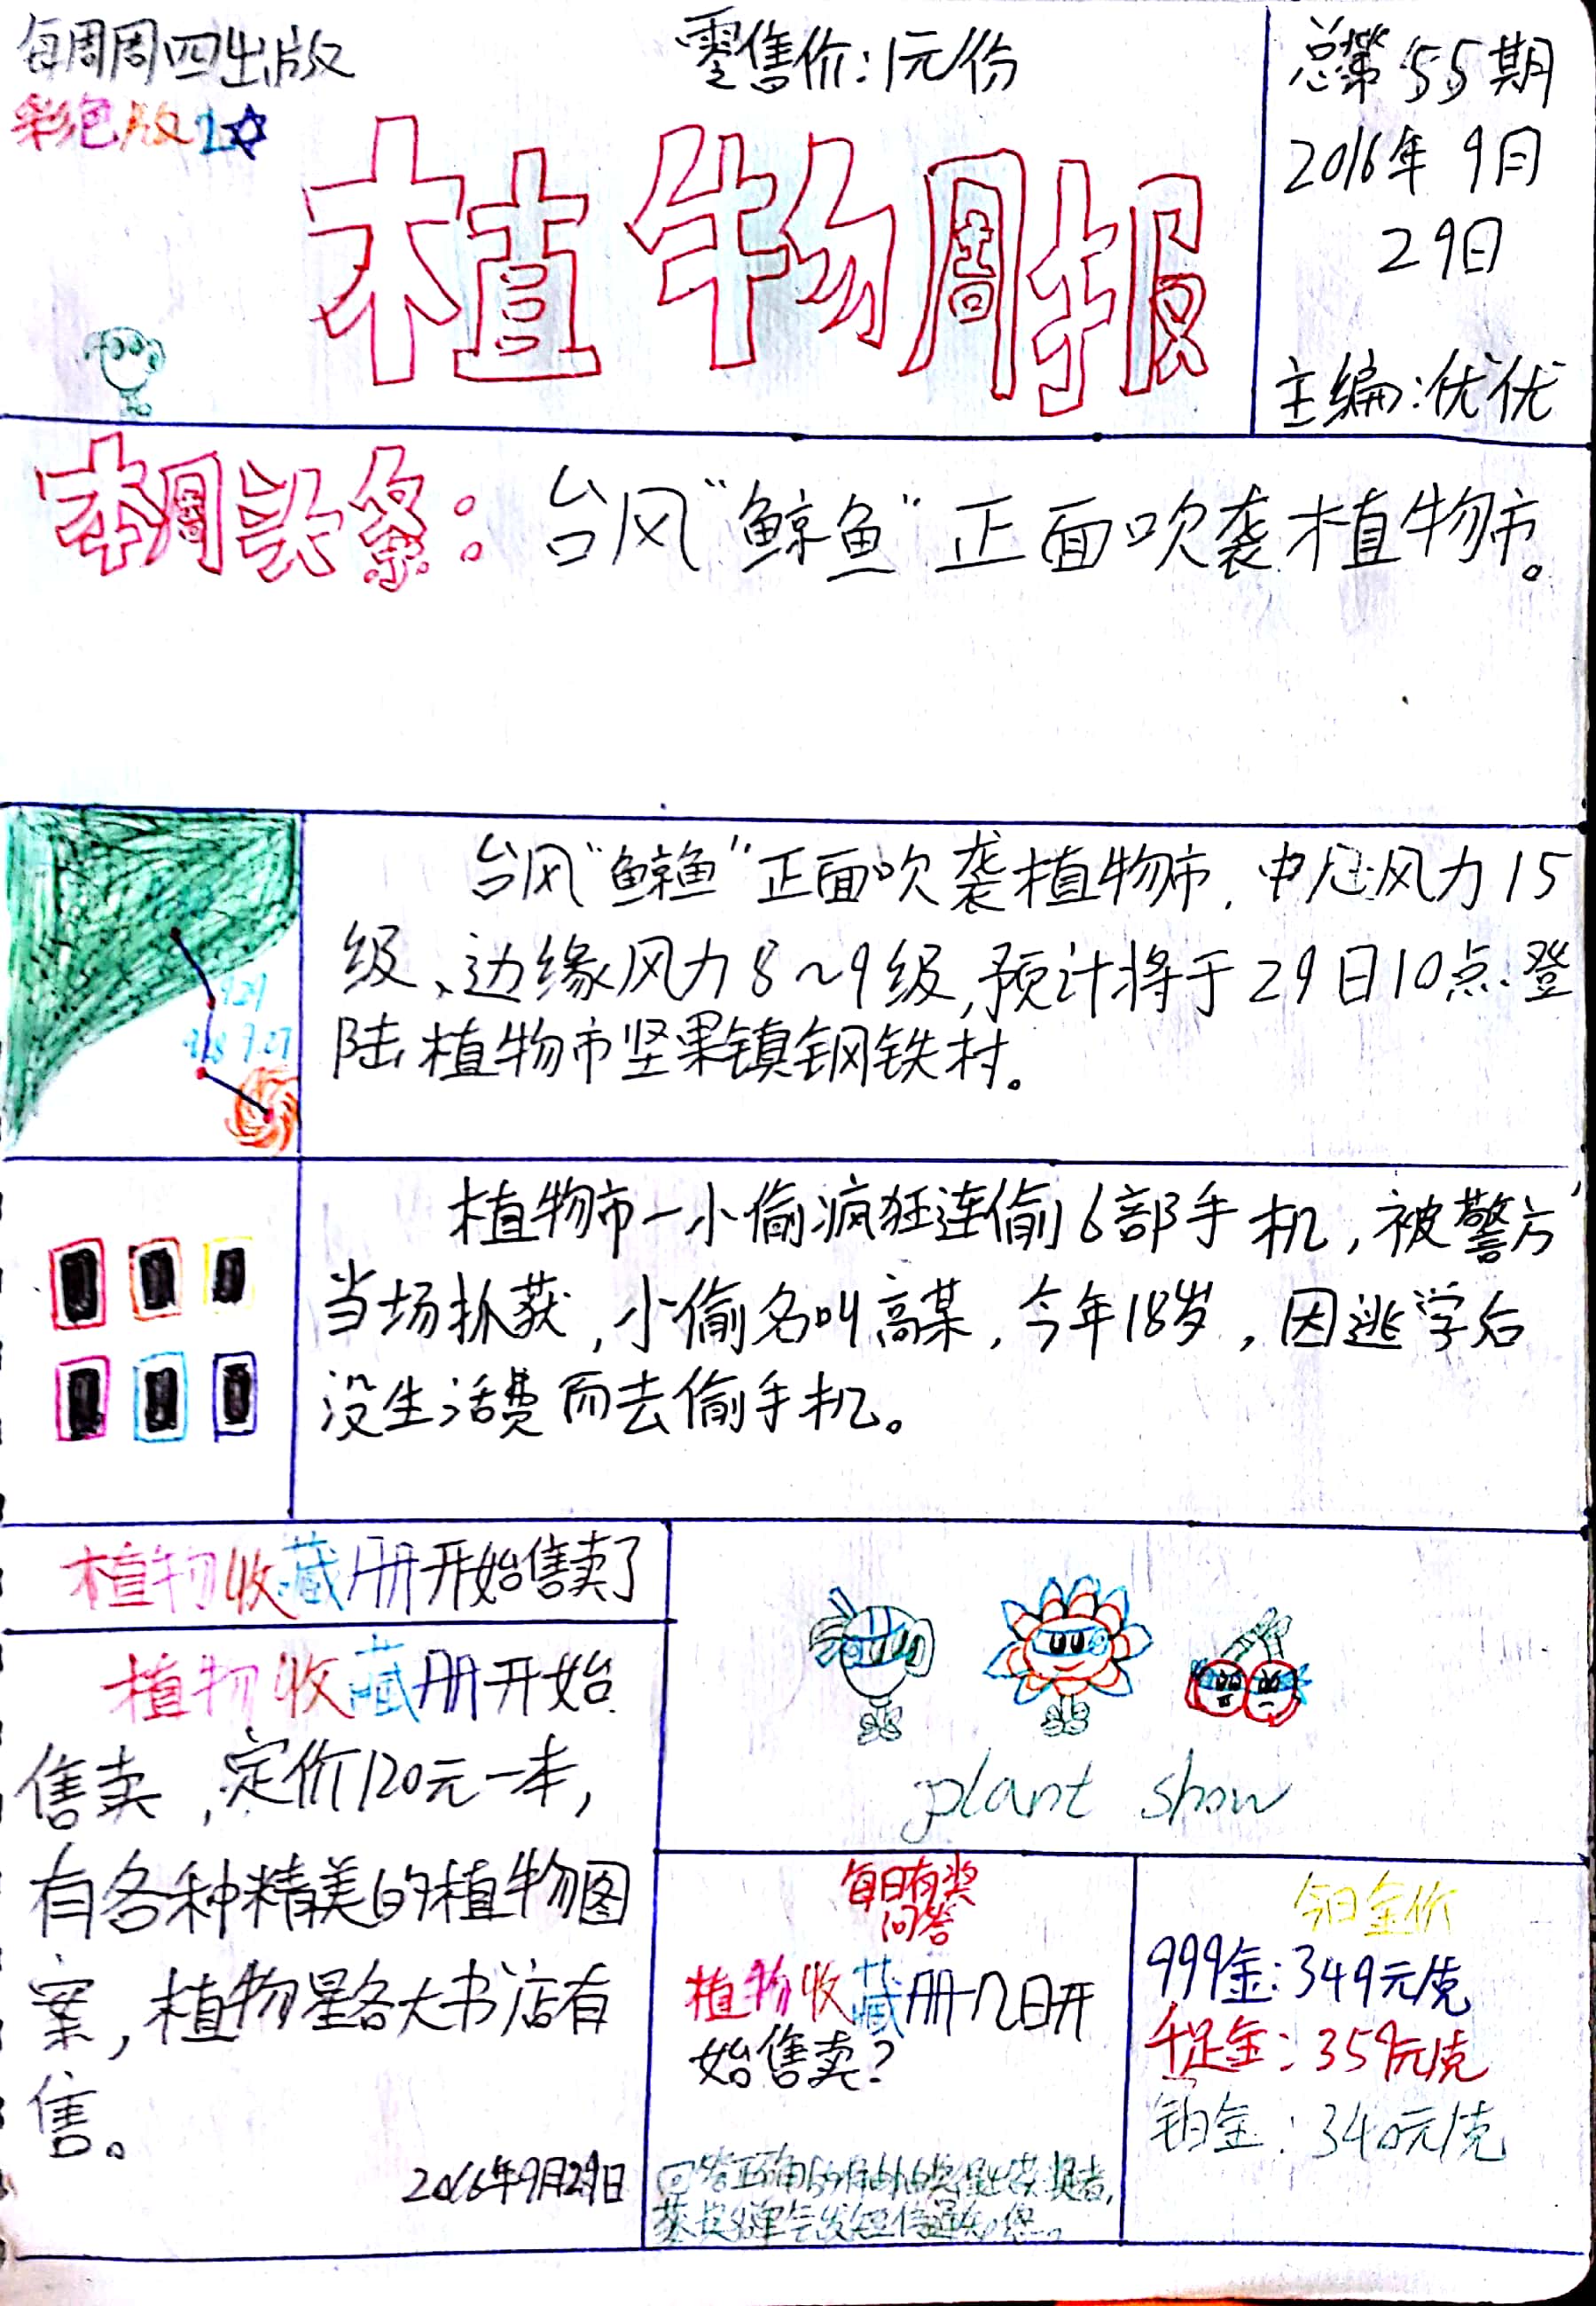 每周周四出版
零售价:1元/份
总第55期
彩色版
2016年9月
29日
植物周报
主编:优优
本周头条:台风“鲸鱼”正面吹袭植物市。
台风“鲸鱼”正面吹袭植物市,中心风力15
级、边缘风力8~9级,预计将于29日10点登
陆植物市坚果镇钢铁村。
929
植物市一小偷疯狂连偷6部手机,被警方
当场抓获,小偷名叫高某,今年18岁,因逃学后
没生活费而去偷手机。
植物收藏册开始售卖了
植物收藏册开始
售卖,定价120元一本,
有各种精美的植物图
案,植物星各大书店有
售。
2016年9月29日
plant show
每日有奖
问答
植物收藏册几日开
始售卖?
回答正确的
短信通知您。
今日金价
999金:349元/克
千足金:359元/克
铂金:340元/克